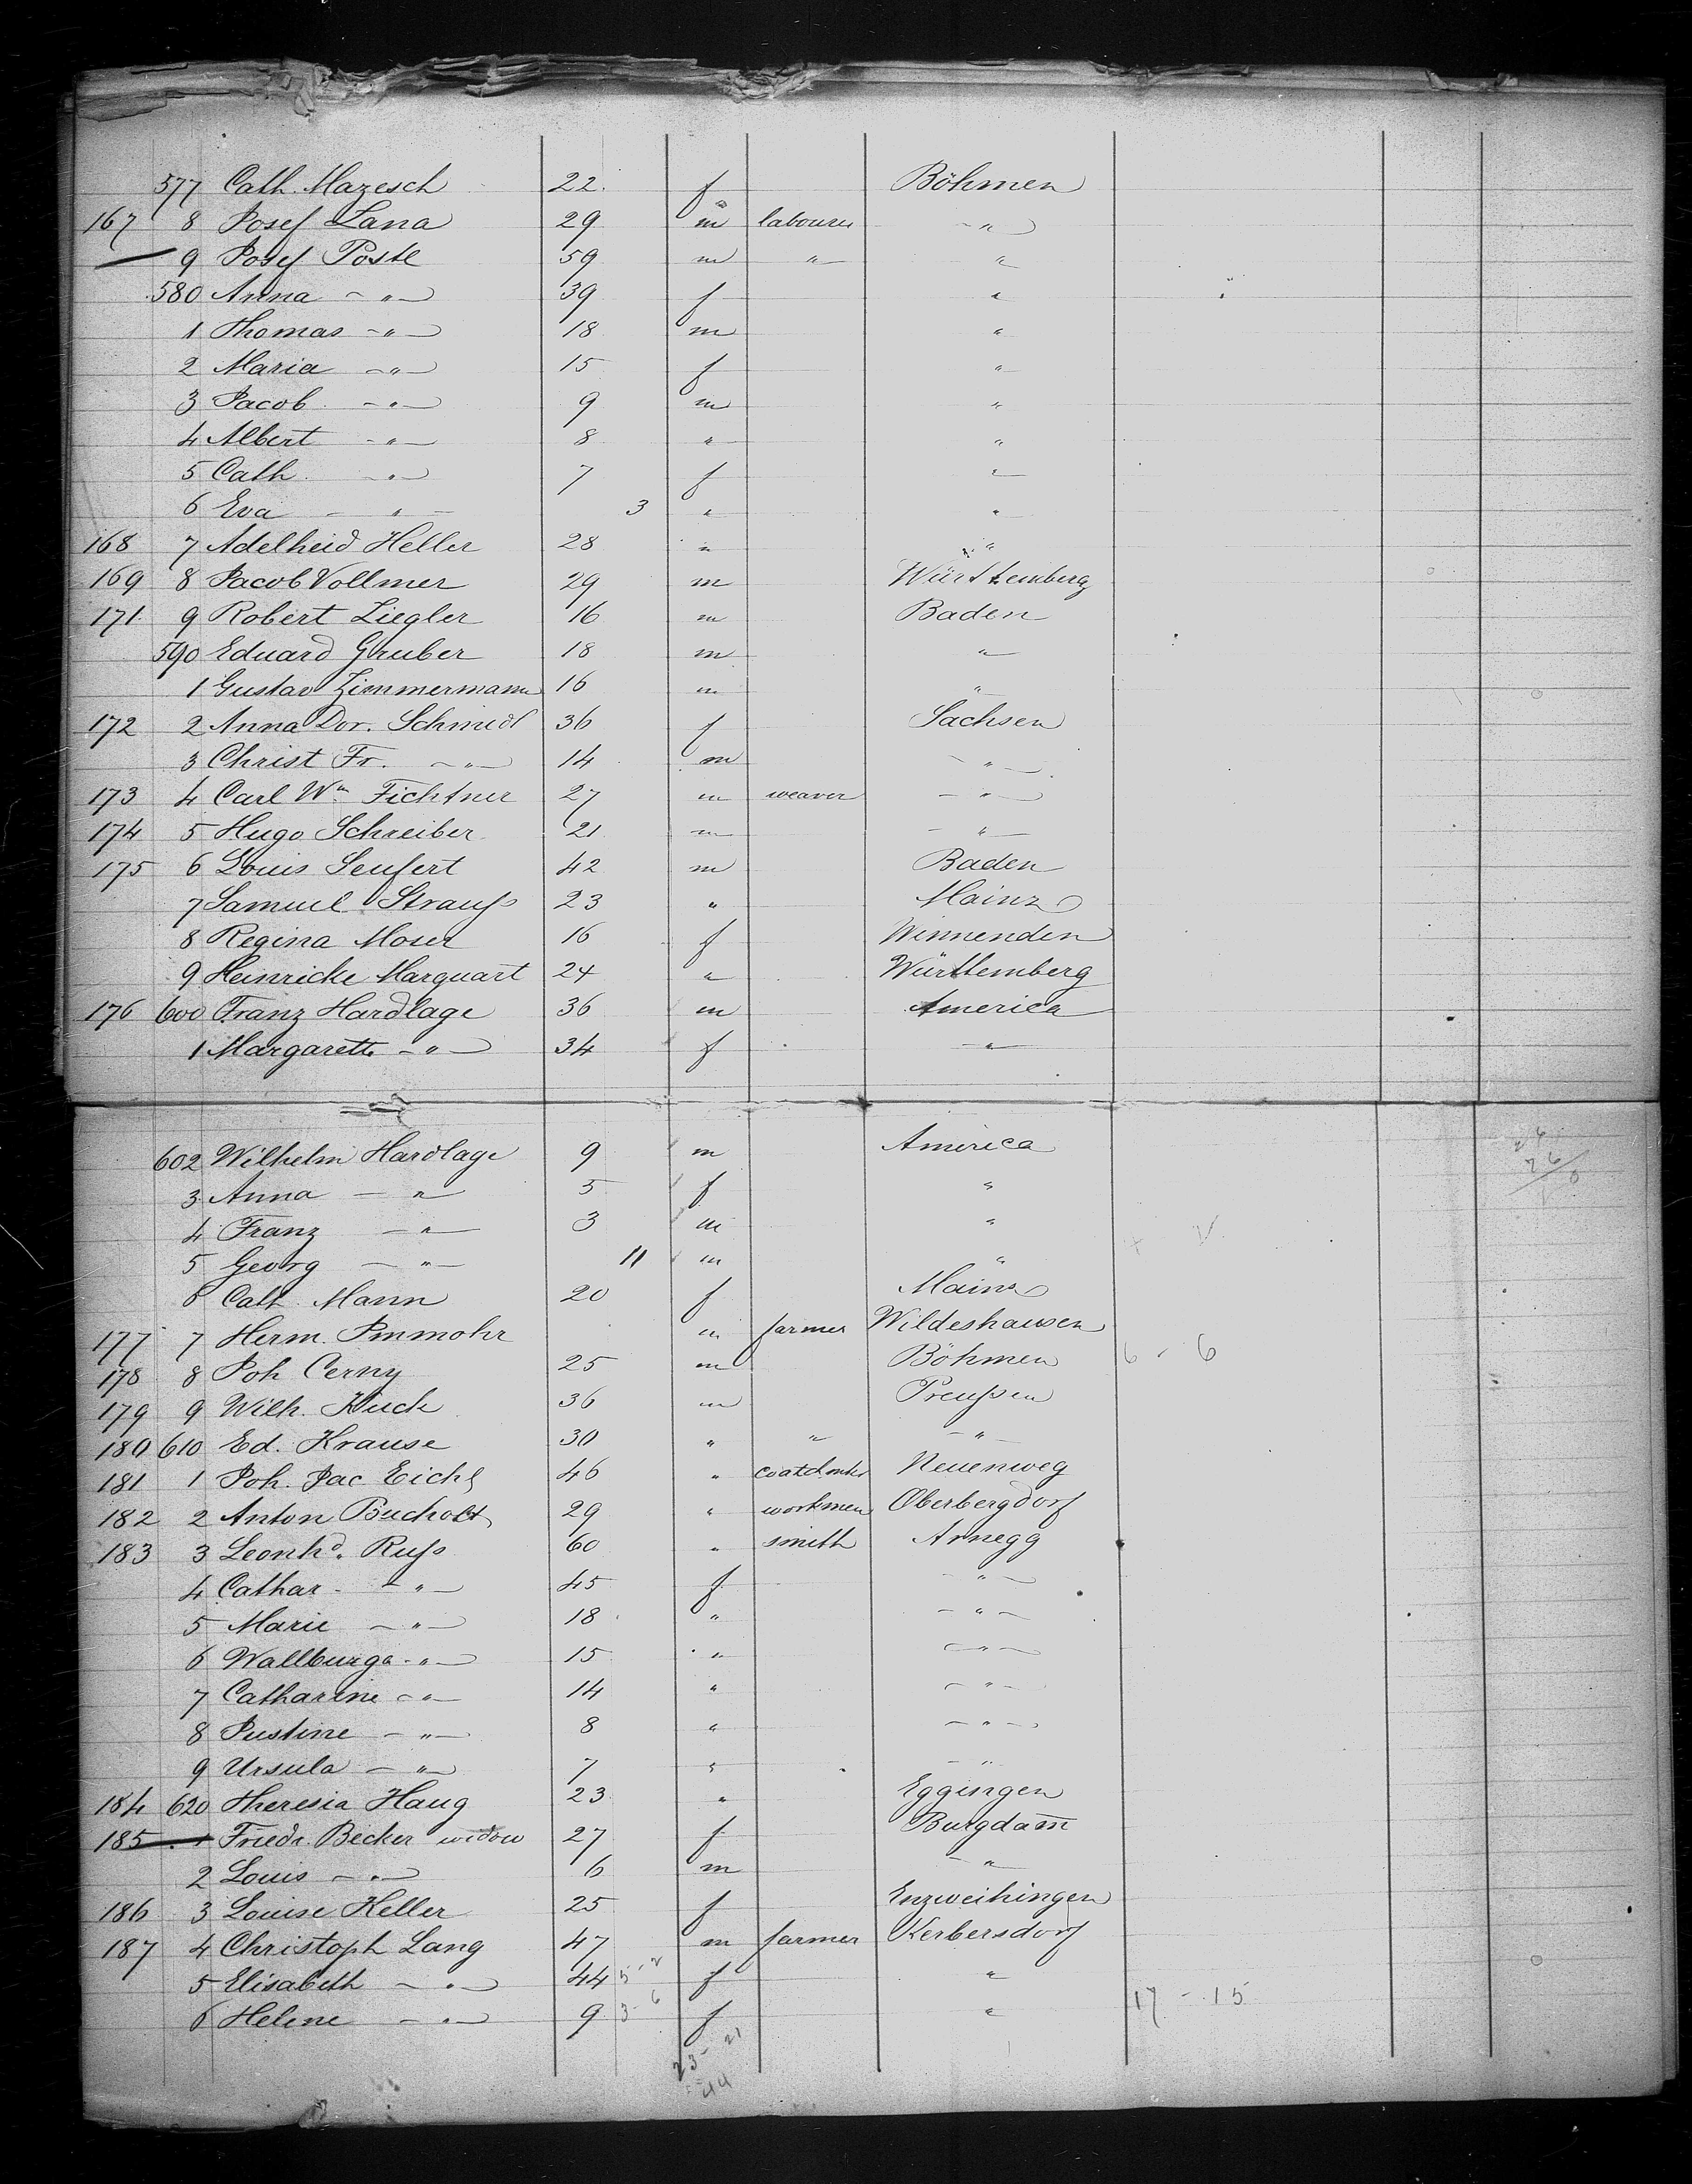 577 Cath. Mazesch 22. f Böhmen
167 8 Josef Lana 29 m labourer - " -
9 Josef Postl 59 m " "
580 Anna - " - 39 f "
1 Thomas - " - 18 m "
2 Maria - " - 15 f "
3 Jacob - " - 9 m "
4 Albert - " - 8 " "
5 Cath. - " - 7 f "
6 Eva - " - 3 " "
168 7 Adelheid Heller 28 " "
169 8 Jacob Vollmer 29 m Württemberg
171. 9 Robert Ziegler 16 m Baden
590 Eduard Gruber 18 m "
1 Gustav Zimmermann 16 m "
172 2 Anna Dor. Schmidt 36 f Sachsen
3 Christ Fr. - " - 14 m - " -
173 4 Carl Wm Fichtner 27 m weaver - " -
174 5 Hugo Schreiber 21 m - " -
175 6 Louis Seufert 42 m Baden
7 Samuel Strauß 23 " Mainz
8 Regina Moser 16 f Winnenden
9 Heinricke Marquart 24 " Württemberg
176 600 Franz Hardlage 36 m America
1 Margareth - " - 34 f - " -
602 Wilhelm Hardlage 9 m America
3 Anna - " 5 f "
4 Franz - " - 3 m "
5 Georg - " - 11 m "
6 Cath. Mann 20 f Mainz
177 7 Herm. Immohr m farmer Wildeshausen
178 8 Joh Cerny 25 m Böhmen 6 - 6
179 9 Wilh. Huck 36 m Preußen
180 610 Ed. Krause 30 " " - " -
181 1 Joh. Jac Eichs 46 " Neuenweg
182 2 Anton Bucholt 29 " workmen Oberbergdorf
183 3 Leonhd. Ruß 60 " smith Arnegg
4 Cathar. - " - 45 f - " -
5 Marie - " - 18 " - " -
6 Wallburga - " - 15 " - " -
7 Catharine - " - 14 " - " -
8 Justine - " - 8 " - " -
9 Ursula - " - 7 " - "
184 620 Theresia Haug 23 " Eggingen
185 1 Friedr. Becker widow 27 f Burgdam̄
2 Louis - " - 6 m - " -
186 3 Louise Keller 25 f Enzweihingen
187 4 Christoph Lang 47 m farmer Kerbersdorf
5 Elisabeth - " - 44 5-2 f "
6 Helene - " - 9 3-6 f " 17 - 15
23 - 21
44